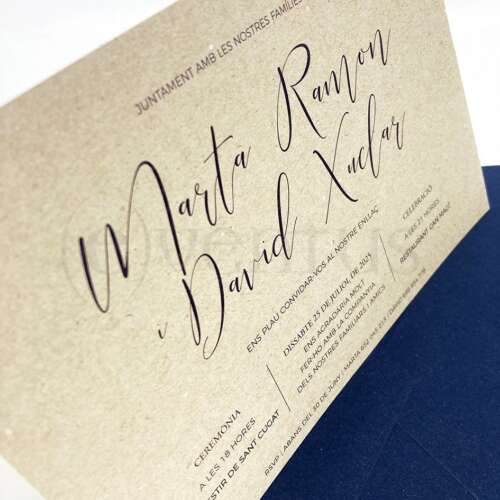 JUNTAMENT AMB LES NOSTRES FAMÍLIES
Marta Ramon
i David Xuclar
ENS PLAU CONVIDAR-VOS AL NOSTRE ENLLAÇ
CEREMONIA
A LES 18 HORES
DE SANT CUGAT
DISSABTE 25 DE JULIOL DE 2025
ENS AGRADARIA MOLT
FER-HO AMB LA COMPANYIA
DELS NOSTRES FAMILIARS I AMICS
CELEBRACIÓ
A LES 21 HORES
RESTAURANT CAN MAGÍ
RSVP | ABANS DEL 30 DE JUNY | MARTA